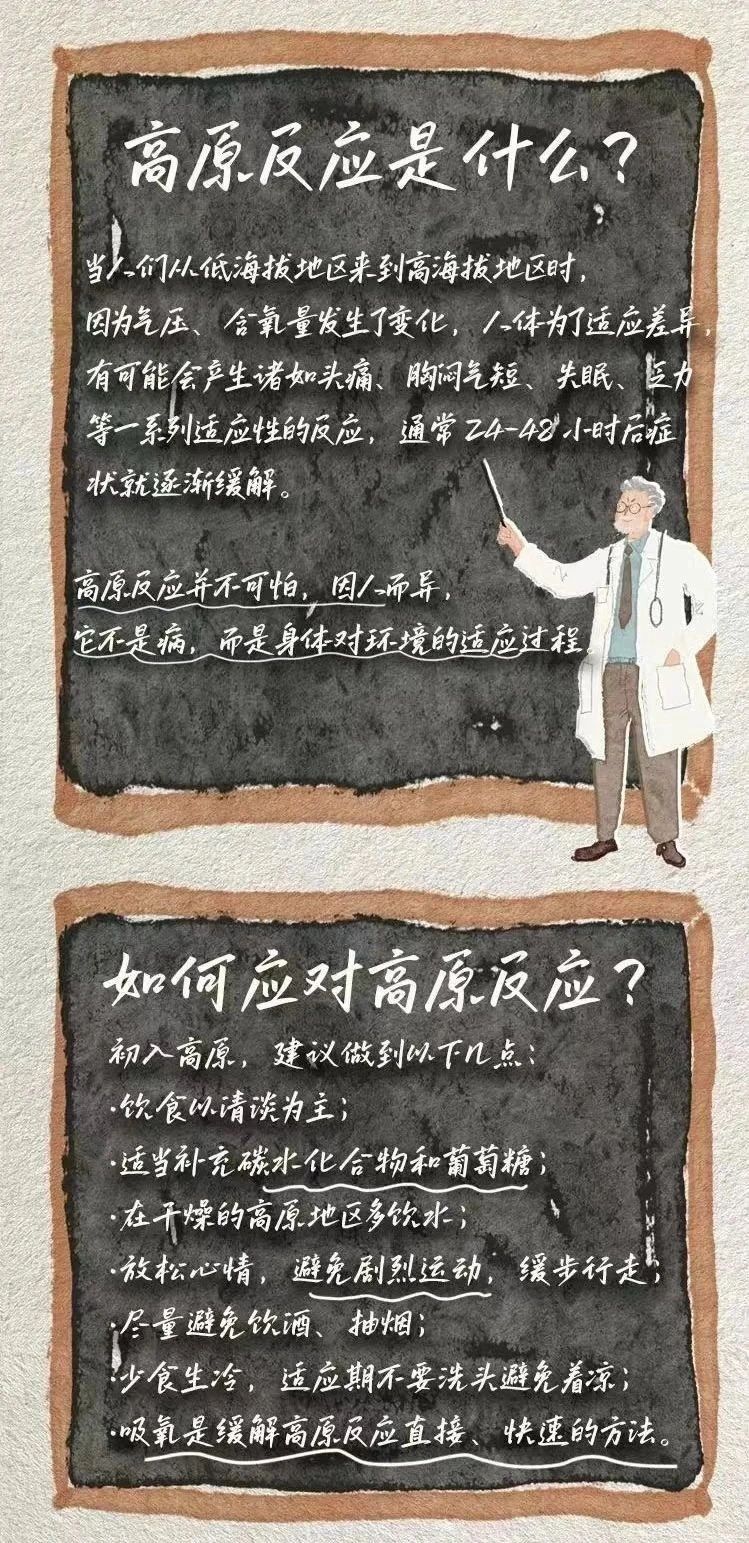 高原反应是什么？
当人们从低海拔地区来到高海拔地区时，
因为气压、含氧量发生了变化，人体为了适应差异，
有可能会产生诸如头痛、胸闷气短、失眠、乏力
等一系列适应性的反应，通常24-48小时后症
状就逐渐缓解。
高原反应并不可怕，因人而异，
它不是病，而是身体对环境的适应过程。
如何应对高原反应？
初入高原，建议做到以下几点：
·饮食以清谈为主；
·适当补充碳水化合物和葡萄糖；
·在干燥的高原地区多饮水；
·放松心情，避免剧烈运动，缓步行走；
·尽量避免饮酒、抽烟；
·少食生冷，适应期不要洗头避免着凉；
·吸氧是缓解高原反应直接、快速的方法。